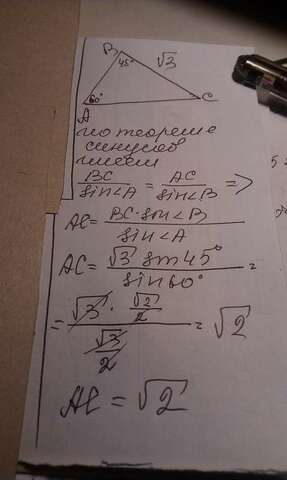 B
45° √3
60°
A C
по теореме
синусов
имеем
BC/sin∠A = AC/sin∠B =>
AC = BC·sin∠B/sin∠A
AC = √3 sin45°/sin60° =
= (√3 · √2/2)/(√3/2) = √2
AC = √2